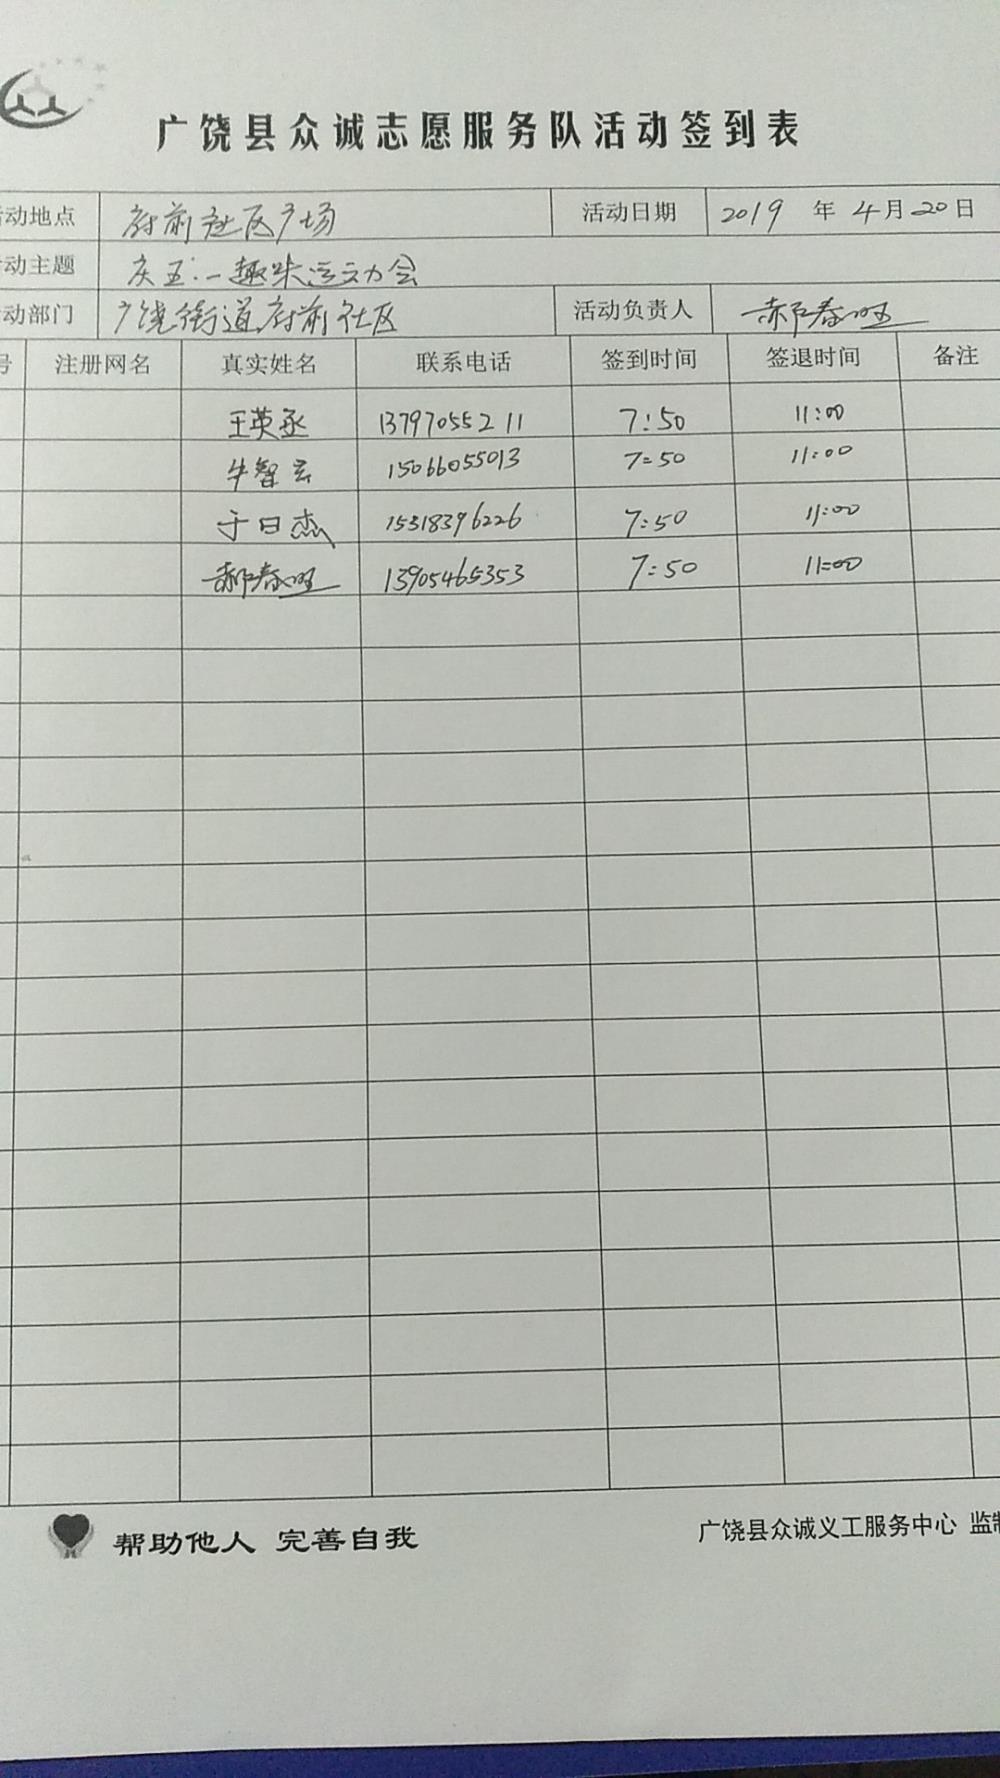 广饶县众诚志愿服务队活动签到表
活动地点 府前社区广场 活动日期 2019 年 4月20日
活动主题 庆五·一趣味运动会
活动部门 广饶街道府前社区 活动负责人 郝春旺
号 注册网名 真实姓名 联系电话 签到时间 签退时间 备注
王英丞 13797055211 7:50 11:00
牛智云 15066055013 7:50 11:00
于日杰 15318396226 7:50 11:00
郝春旺 13905465353 7:50 11:00
帮助他人 完善自我
广饶县众诚义工服务中心 监制